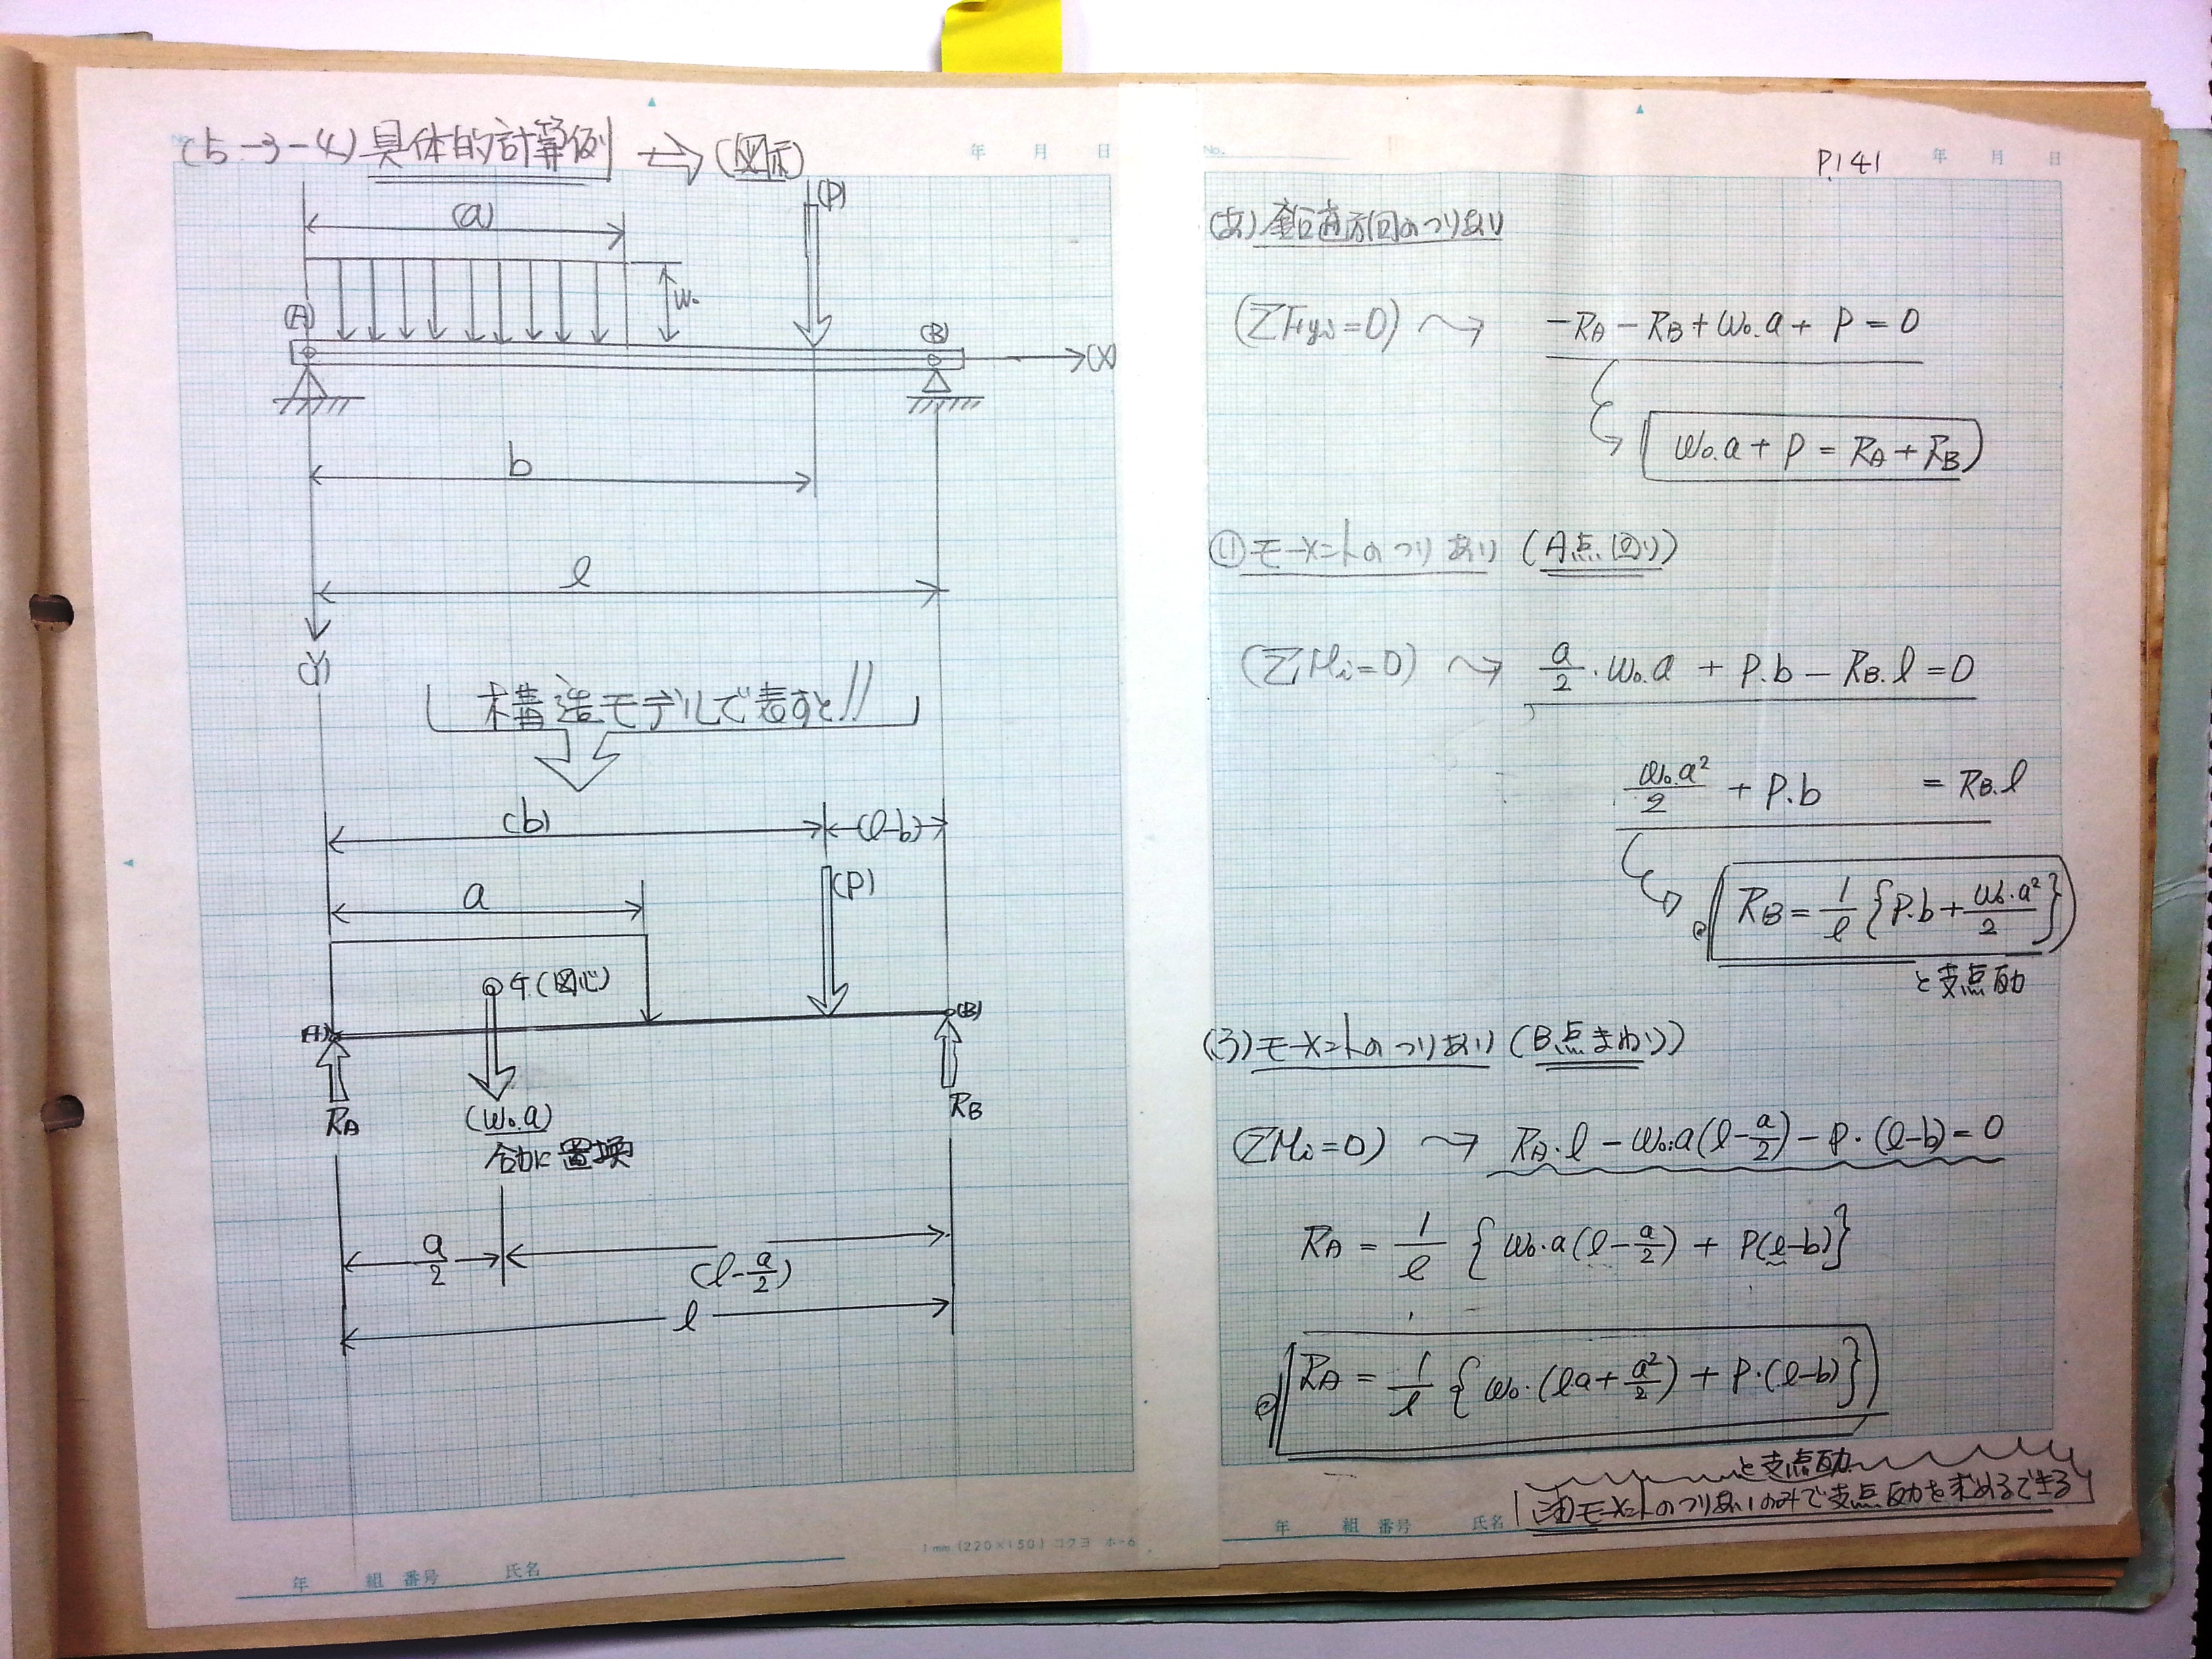 (5-3-4) 具体的計算例 ⇒ (図示)
年 月 日
(a)
(P)
W₀
(A)
(B)
(X)
b
ℓ
(Y)
構造モデルで表すと!!
(b)
(ℓ-b)
a
(P)
G(図心)
(A)
(B)
RA
(W₀.a)
RB
合力に置換
a/2
(ℓ-a/2)
ℓ
1mm (220×150) コクヨ ホ-6
年 組 番号 氏名
No.
P.141
年 月 日
(あ) 鉛直方向のつりあい
(ΣFyi=0) → -RA - RB + W₀.a + P = 0
W₀.a + P = RA + RB
モーメントのつりあい (A点回り)
(ΣMi=0) → a/2 · W₀.a + P.b - RB.ℓ = 0
W₀.a²/2 + P.b = RB.ℓ
RB = 1/ℓ {P.b + W₀.a²/2}
と支点反力
(3) モーメントのつりあい (B点まわり)
(ΣMi=0) → RA.ℓ - W₀.a(ℓ-a/2) - P.(ℓ-b) = 0
RA = 1/ℓ {W₀.a(ℓ-a/2) + P(ℓ-b)}
RA = 1/ℓ {W₀.(ℓa+a²/2) + P.(ℓ-b)}
と支点反力
(注)モーメントのつりあいのみで支点反力を求めるできる
年 組 番号 氏名